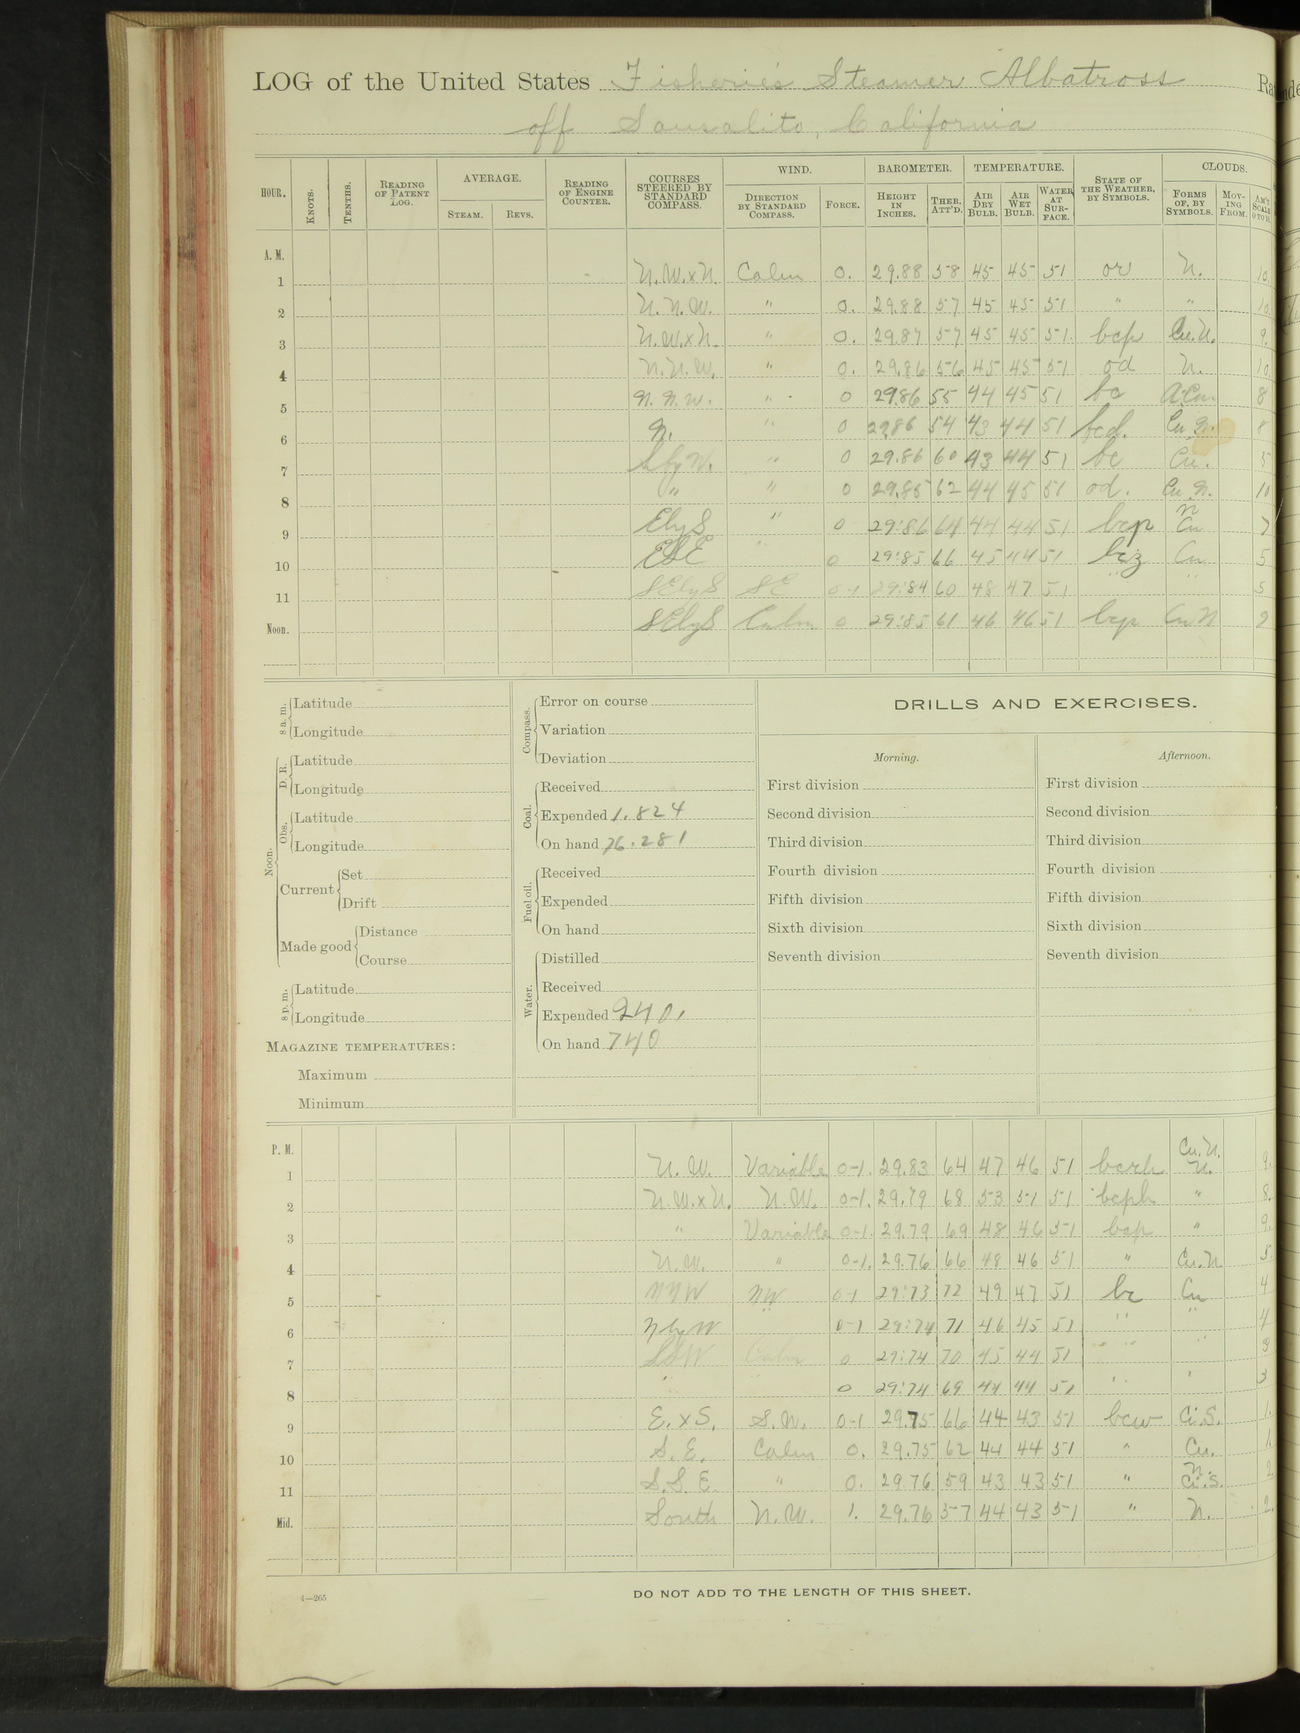 LOG of the United States Fisheries Steamer Albatross Ra
off Sausalito, California
HOUR. KNOTS. TENTHS. READING OF PATENT LOG. AVERAGE. STEAM. REVS. READING OF ENGINE COUNTER. COURSES STEERED BY STANDARD COMPASS. WIND. DIRECTION BY STANDARD COMPASS. FORCE. BAROMETER. HEIGHT IN INCHES. THER. ATT'D. TEMPERATURE. AIR DRY BULB. AIR WET BULB. WATER AT SURFACE. STATE OF THE WEATHER, BY SYMBOLS. CLOUDS. FORMS OF, BY SYMBOLS. MOVING FROM. AM'T SCALE 0 TO 10.
A. M.
1 N.W.xN. Calm 0. 29.88 58 45 45 51 or N. 10
2 N.N.W. " 0. 29.88 57 45 45 51 " " 10
3 N.W.xN. " 0. 29.87 57 45 45 51. bcp Cu.N. 9.
4 N.N.W. " 0. 29.86 56 45 45 51 od N. 10
5 N.N.W. " 0 29.86 55 44 45 51 bc A-Cu. 8
6 N. " 0 29.86 54 43 44 51 bcd. Cu.N. 8
7 SbyW. " 0 29.86 60 43 44 51 bc Cu. 5
8 " " 0 29.85 62 44 45 51 od. Cu.N. 10
9 EbyS " 0 29.86 64 44 44 51 bcp N Cu 7
10 ESE " 0 29.85 66 45 44 51 bcz Cu 5
11 SEbyS SE 0-1 29.84 60 48 47 51 " " 5
Noon. SEbyS Calm 0 29.85 61 46 46 51 bcp Cu N
8 a. m. Latitude
Longitude
Noon. D. R. Latitude
Longitude
Obs. Latitude
Longitude
Current Set
Drift
Made good Distance
Course
8 p. m. Latitude
Longitude
MAGAZINE TEMPERATURES:
Maximum
Minimum
Compass. Error on course
Variation
Deviation
Coal. Received
Expended 1.824
On hand 76.281
Fuel oil. Received
Expended
On hand
Water. Distilled
Received
Expended 240.
On hand 740
DRILLS AND EXERCISES.
Morning. Afternoon.
First division First division
Second division Second division
Third division Third division
Fourth division Fourth division
Fifth division Fifth division
Sixth division Sixth division
Seventh division Seventh division
P. M.
1 N.W. Variable 0-1. 29.83 64 47 46 51 bcrh Cu.N. N. 9.
2 N.W.xN. N.W. 0-1. 29.79 68 53 51 51 bcph " 8.
3 " Variable 0-1. 29.79 69 48 46 51 bcp " 9.
4 N.W. " 0-1. 29.76 66 48 46 51 " Cu.N 5.
5 NNW NW 0-1 29.73 72 49 47 51 bc Cu 4
6 NbyW " 0-1 29.74 71 46 45 51 " " 4
7 SSW Calm 0 29.74 70 45 44 51 " " 3
8 " " 0 29.74 69 44 44 51 " " 3
9 E.xS. S.W. 0-1 29.75 66 44 43 51 bcw Ci.S. 1.
10 S.E. Calm 0. 29.75 62 44 44 51 " Cu. 1.
11 S.S.E. " 0. 29.76 59 43 43 51 " N. Ci.S. 2.
Mid. South N.W. 1. 29.76 57 44 43 51 " N. 2.
4—265 DO NOT ADD TO THE LENGTH OF THIS SHEET.